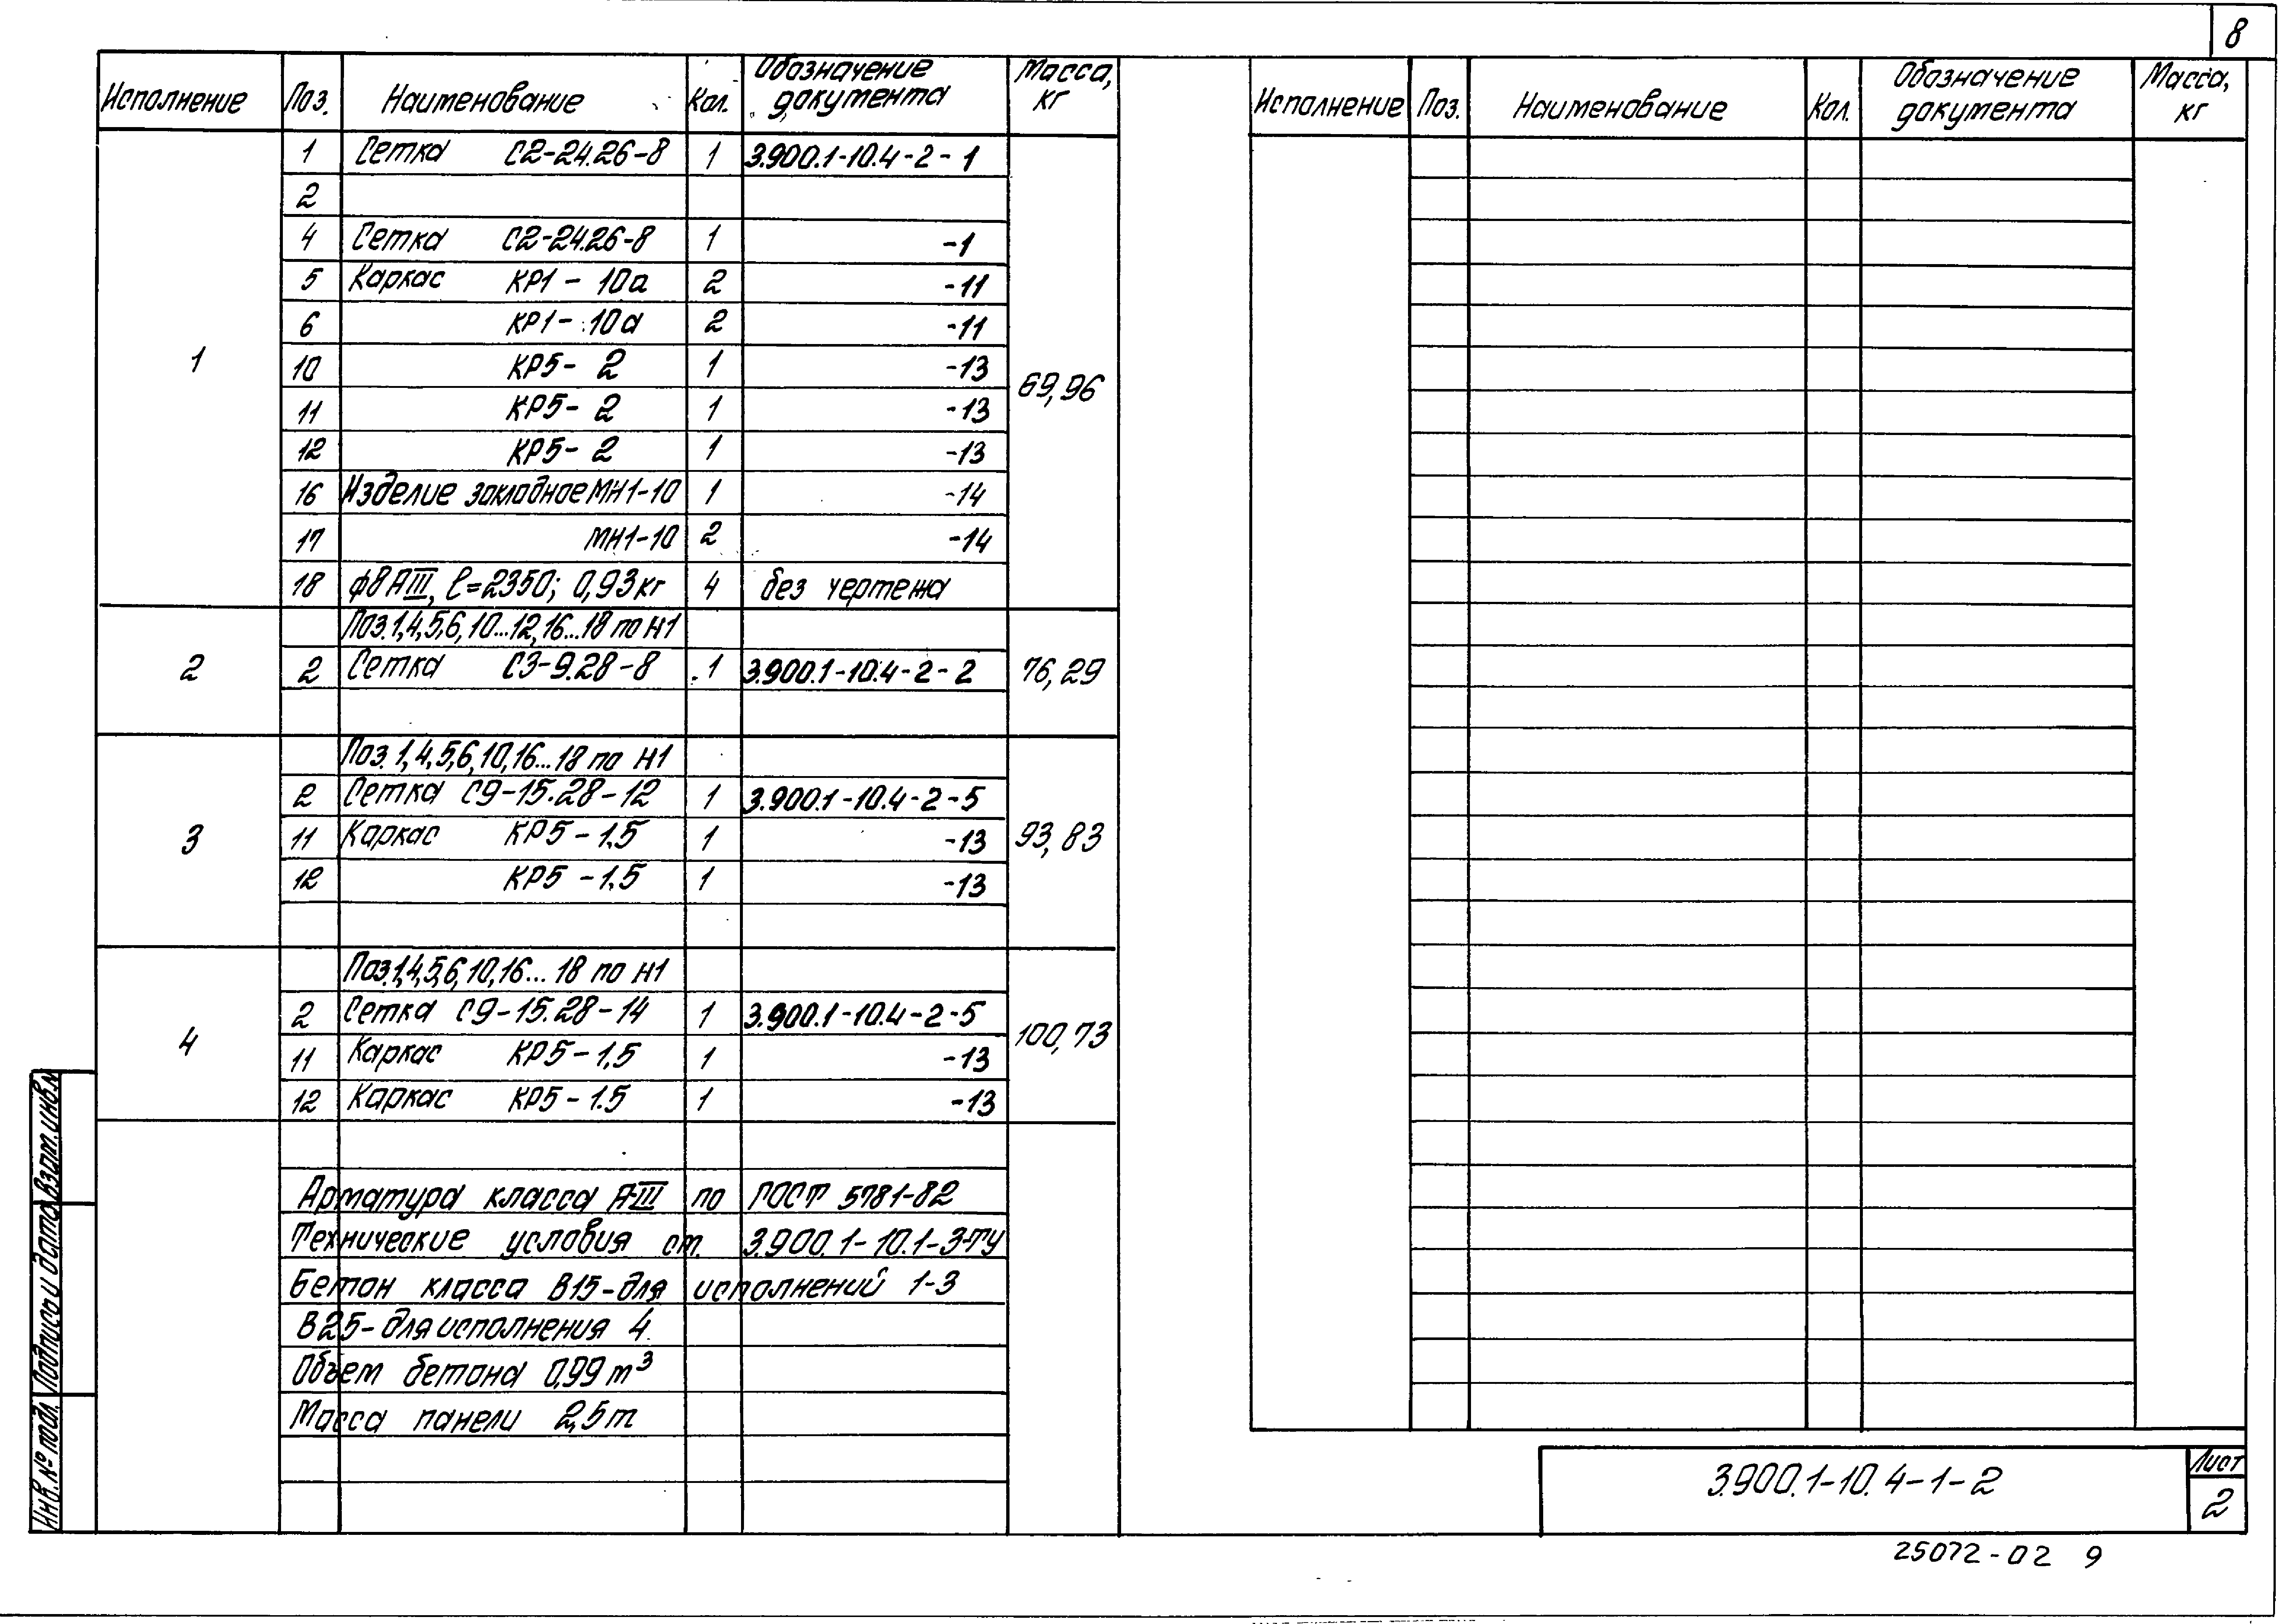 8
Исполнение Поз. Наименование Кол. Обозначение документа Масса, кг
1 1 Сетка С2-24.26-8 1 3.900.1-10.4-2-1 69,96
2
4 Сетка С2-24.26-8 1 -1
5 Каркас КР1-10а 2 -11
6 КР1-10а 2 -11
10 КР5-2 1 -13
11 КР5-2 1 -13
12 КР5-2 1 -13
16 Изделие закладное МН1-10 1 -14
17 МН1-10 2 -14
18 ф8АIII, ℓ=2350; 0,93кг 4 без чертежа
2 Поз.1,4,5,6,10...12,16...18 по И1 76,29
2 Сетка С3-9.28-8 1 3.900.1-10.4-2-2
3 Поз.1,4,5,6,10,16...18 по И1 93,83
2 Сетка С9-15.28-12 1 3.900.1-10.4-2-5
11 Каркас КР5-1.5 1 -13
12 КР5-1.5 1 -13
4 Поз.1,4,5,6,10,16...18 по И1 100,73
2 Сетка С9-15.28-14 1 3.900.1-10.4-2-5
11 Каркас КР5-1.5 1 -13
12 Каркас КР5-1.5 1 -13
Арматура класса А-III по ГОСТ 5781-82
Технические условия см. 3.900.1-10.1-3-ТУ
Бетон класса В15-для исполнений 1-3
В25-для исполнения 4.
Объем бетона 0,99 м³
Масса панели 2,5т
Исполнение Поз. Наименование Кол. Обозначение документа Масса, кг
Инв.№ подл. Подпись и дата Взам.инв.№
3.900.1-10.4-1-2
Лист
2
25072-02 9